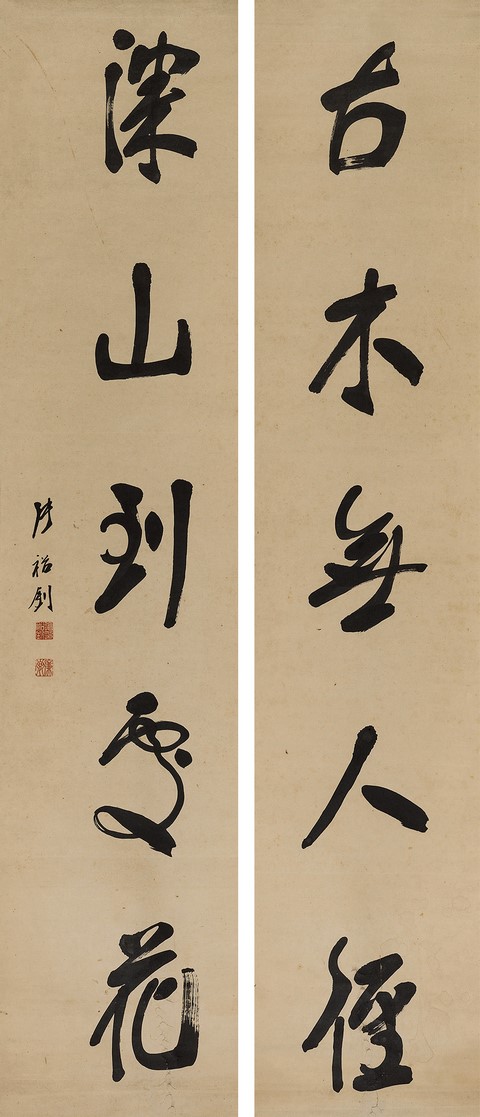 古木無人徑
深山到處花
張裕釗